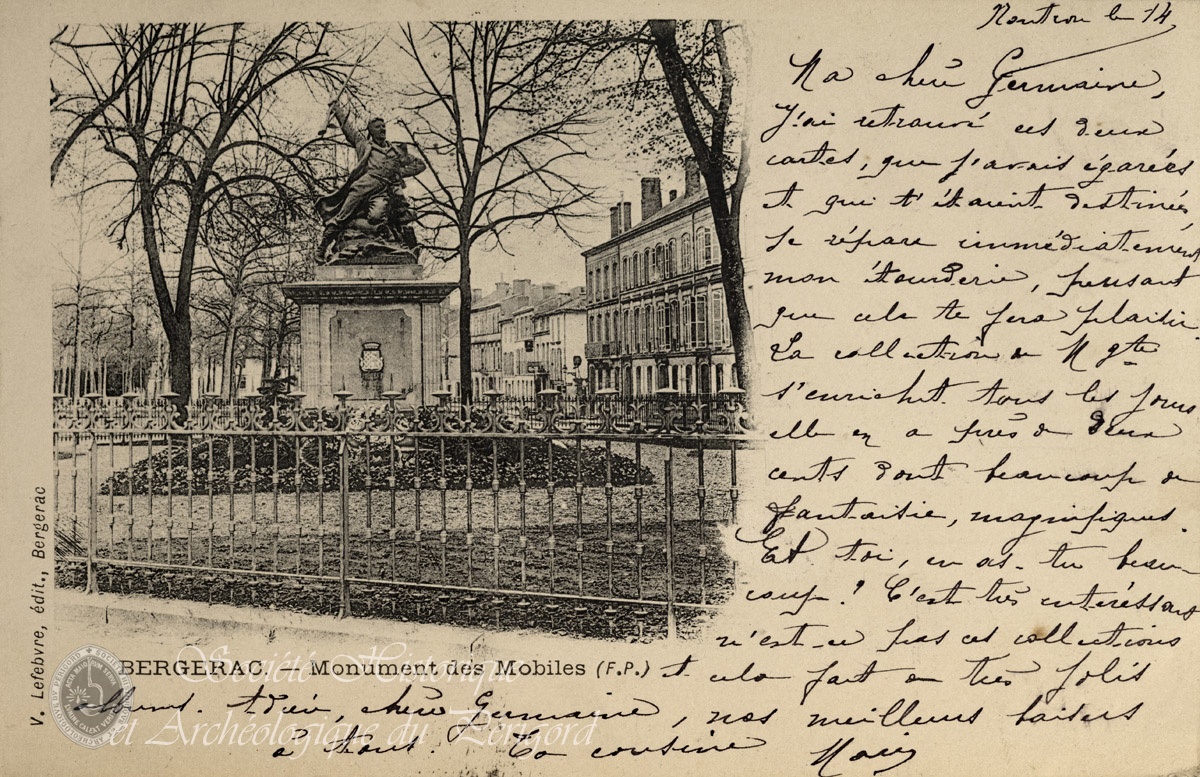 Nontron le 14
Ma chère Germaine,
J'ai retrouvé ces deux
cartes, que j'avais égarées
et qui t'étaient destinées
Je répare immédiatement
mon étourderie, pensant
que cela te fera plaisir.
La collection de Mgte
s'enrichit tous les jours
elle en a près de deux
cents dont beaucoup de
fantaisie, magnifiques.
Et toi, en as-tu beau-
coup? C'est très intéressant
n'est-ce pas ces collections
et cela fait de très jolis
albums. Adieu, chère Germaine, nos meilleurs baisers
à tous. Ta cousine Marie
V. Lefebvre, édit., Bergerac
BERGERAC. — Monument des Mobiles (F.P.)
Société Historique
et Archéologique du Périgord